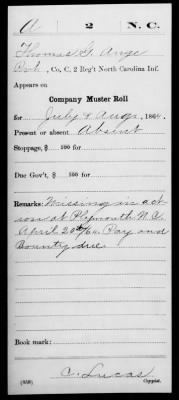 A 2 N. C.
Thomas G. Ange
Pvt, Co. C, 2 Reg't North Carolina Inf.
Appears on
Company Muster Roll
for July & Aug, 1864.
Present or absent Absent
Stoppage, $ 100 for
Due Gov't, $ 100 for
Remarks: Missing in act
ion at Plymouth N.C.
April 20th/64. Pay and
Bounty due.
Book mark:
C. Lucas
Copyist.